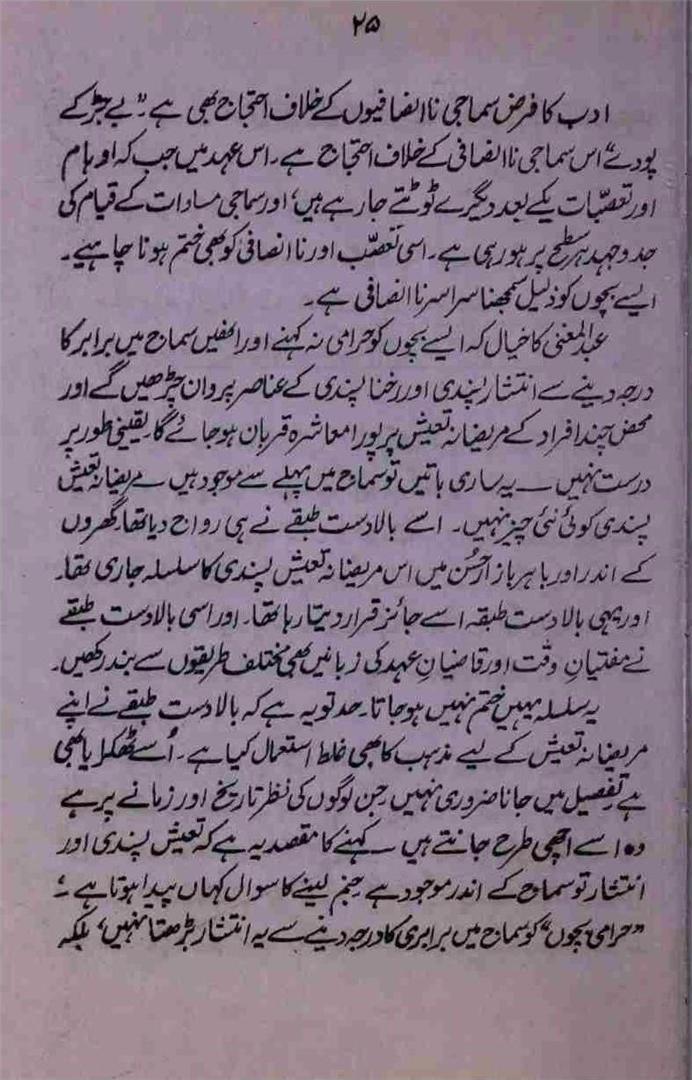 ۲۵
ادب کا فرض سماجی ناانصافیوں کے خلاف احتجاج بھی ہے۔ "بے جڑ کے
پودے" اس سماجی ناانصافی کے خلاف احتجاج ہے۔ اس عہد میں جب کہ اوہام
اور تعصّبات یکے بعد دیگرے ٹوٹتے جا رہے ہیں، اور سماجی مساوات کے قیام کی
جدوجہد ہر سطح پر ہو رہی ہے۔ اسی تعصّب اور ناانصافی کو بھی ختم ہونا چاہیے۔
ایسے بچوں کو ذلیل سمجھنا سراسر ناانصافی ہے۔
عبدالمغنی کا خیال کہ ایسے بچوں کو حرامی نہ کہنے اور انھیں سماج میں برابر کا
درجہ دینے سے انتشار پسندی اور رخنا پسندی کے عناصر پروان چڑھیں گے اور
محض چند افراد کے مریضانہ تعیش پر پورا معاشرہ قربان ہو جائے گا۔ یقینی طور پر
درست نہیں ــ یہ ساری باتیں تو سماج میں پہلے سے موجود ہیں ــ مریضانہ تعیش
پسندی کوئی نئی چیز نہیں۔ اسے بالادست طبقے نے ہی رواج دیا تھا۔ گھروں
کے اندر اور باہر بازارِ حُسن میں اس مریضانہ تعیش پسندی کا سلسلہ جاری تھا۔
اور یہی بالادست طبقہ اسے جائز قرار دیتا رہا تھا۔ اور اسی بالادست طبقے
نے مفتیانِ وقت اور قاضیانِ عہد کی زبانیں بھی مختلف طریقوں سے بند رکھیں۔
یہ سلسلہ یہیں ختم نہیں ہو جاتا۔ حد تو یہ ہے کہ بالادست طبقے نے اپنے
مریضانہ تعیش کے لیے مذہب کا بھی غلط استعمال کیا ہے۔ اُسے ٹھکرایا بھی
ہے تفصیل میں جانا ضروری نہیں جن لوگوں کی نظر تاریخ اور زمانے پر ہے
وہ اسے اچھی طرح جانتے ہیں ــ کہنے کا مقصد یہ ہے کہ تعیش پسندی اور
انتشار تو سماج کے اندر موجود ہے جنم لینے کا سوال کہاں پیدا ہوتا ہے۔؟
"حرامی بچوں" کو سماج میں برابری کا درجہ دینے سے یہ انتشار بڑھتا نہیں، بلکہ